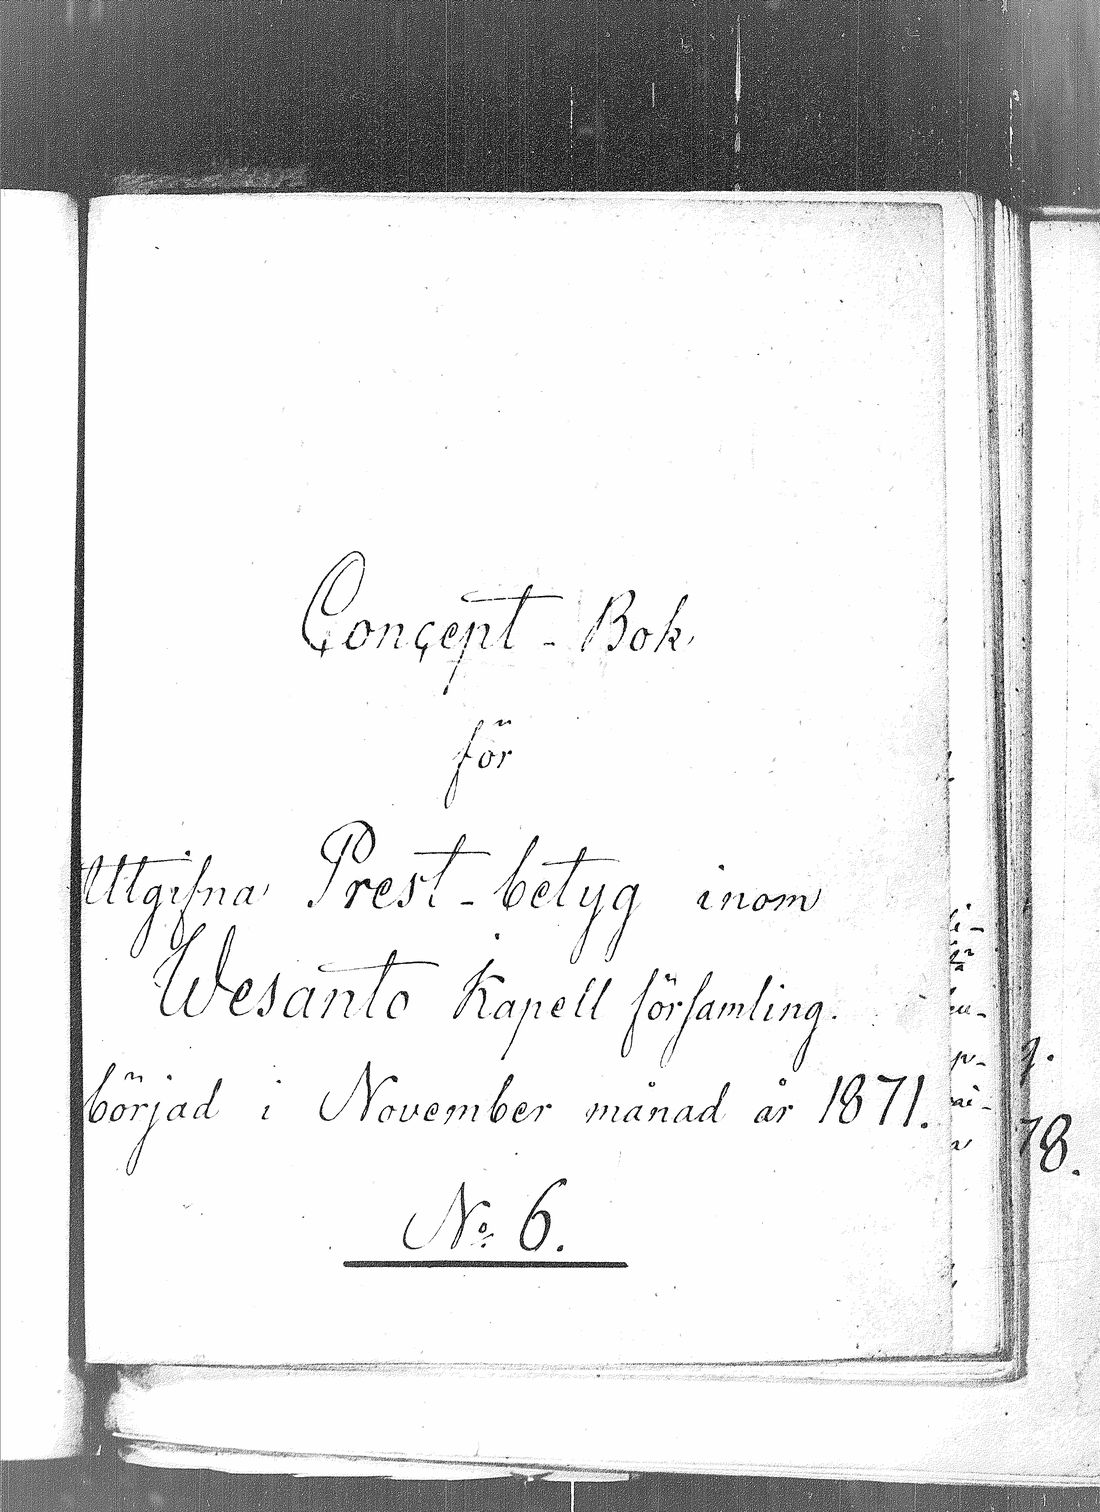 Concept-Bok
för
Utgifna Prest-betyg inom
Wesanto Kapell församling.
börjad i November månad år 1871.
No 6.
78.